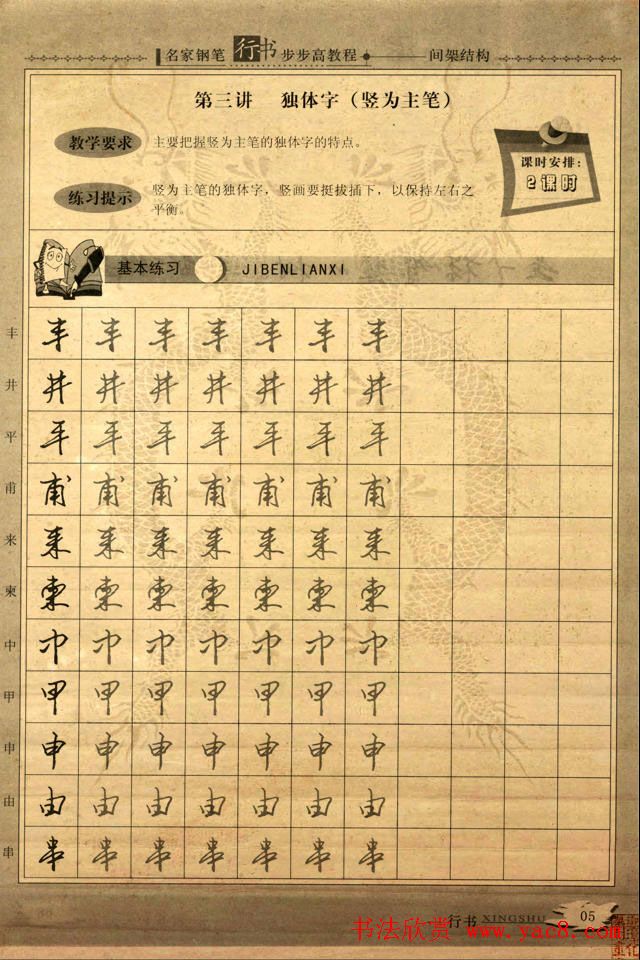 名家钢笔行书步步高教程 间架结构
第三讲 独体字（竖为主笔）
教学要求 主要把握竖为主笔的独体字的特点。
练习提示 竖为主笔的独体字，竖画要挺拔插下，以保持左右之
平衡。
课时安排：
2课时
基本练习 JIBENLIANXI
丰 丰 丰 丰 丰 丰 丰 丰
井 井 井 井 井 井 井 井
平 平 平 平 平 平 平 平
甫 甫 甫 甫 甫 甫 甫 甫
来 来 来 来 来 来 来 来
柬 柬 柬 柬 柬 柬 柬 柬
中 中 中 中 中 中 中 中
甲 甲 甲 甲 甲 甲 甲 甲
申 申 申 申 申 申 申 申
由 由 由 由 由 由 由 由
串 串 串 串 串 串 串 串
行书 XINGSHU 05
书法欣赏 www.yac8.com